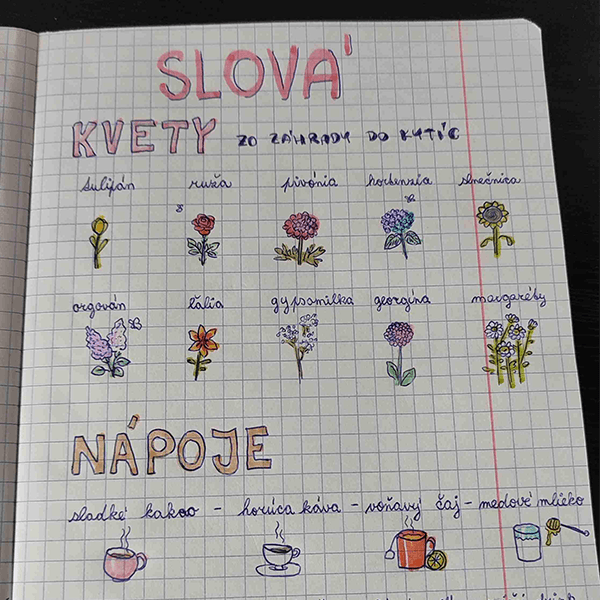 SLOVÁ
KVETY ZO ZÁHRADY DO KYTÍC
tulipán ruža pivónia hortenzia slnečnica
orgován ľália gypsomilka georgína margaréty
NÁPOJE
sladké kakao - horúca káva - voňavý čaj - medové mlieko